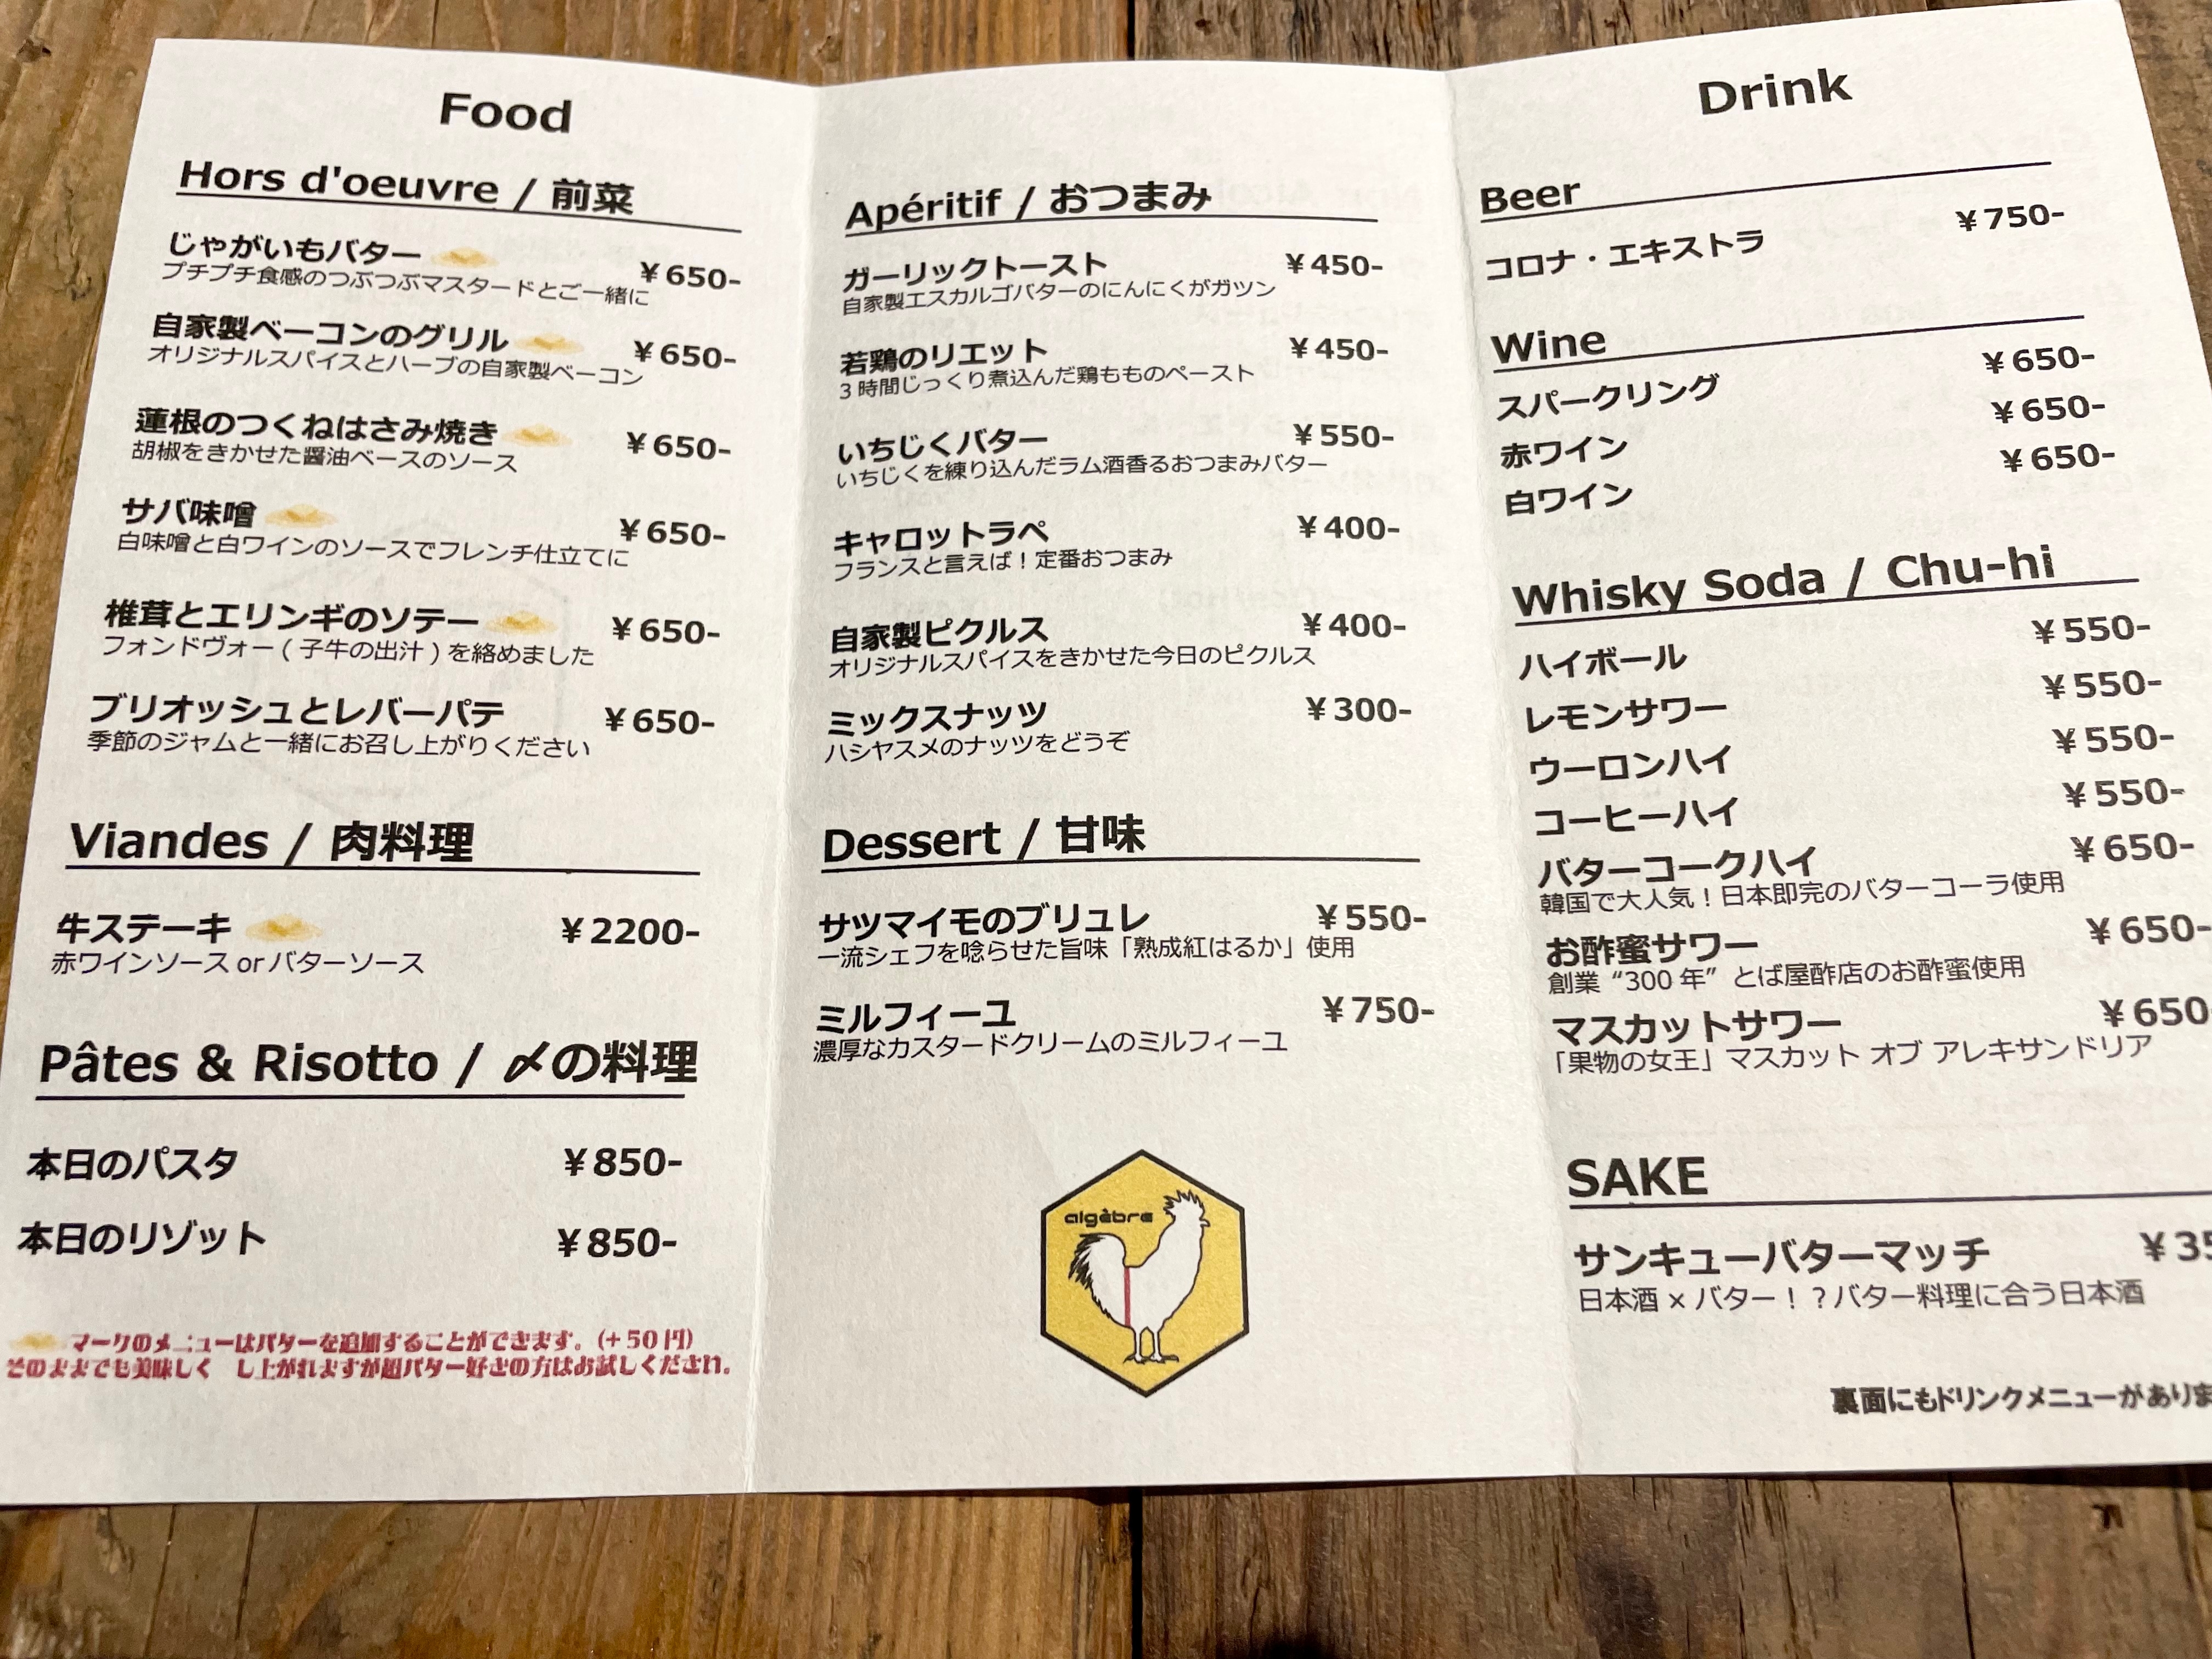 Food
Hors d'oeuvre / 前菜
じゃがいもバター ¥650-
プチプチ食感のつぶつぶマスタードとご一緒に
自家製ベーコンのグリル ¥650-
オリジナルスパイスとハーブの自家製ベーコン
蓮根のつくねはさみ焼き ¥650-
胡椒をきかせた醤油ベースのソース
サバ味噌 ¥650-
白味噌と白ワインのソースでフレンチ仕立てに
椎茸とエリンギのソテー ¥650-
フォンドヴォー ( 子牛の出汁 ) を絡めました
ブリオッシュとレバーパテ ¥650-
季節のジャムと一緒にお召し上がりください
Viandes / 肉料理
牛ステーキ ¥2200-
赤ワインソース or バターソース
Pâtes & Risotto / 〆の料理
本日のパスタ ¥850-
本日のリゾット ¥850-
マークのメニューはバターを追加することができます。(+50円)
そのままでも美味しく し上がれますが超バター好きの方はお試しください。
Apéritif / おつまみ
ガーリックトースト ¥450-
自家製エスカルゴバターのにんにくがガツン
若鶏のリエット ¥450-
3 時間じっくり煮込んだ鶏もものペースト
いちじくバター ¥550-
いちじくを練り込んだラム酒香るおつまみバター
キャロットラペ ¥400-
フランスと言えば！定番おつまみ
自家製ピクルス ¥400-
オリジナルスパイスをきかせた今日のピクルス
ミックスナッツ ¥300-
ハシヤスメのナッツをどうぞ
Dessert / 甘味
サツマイモのブリュレ ¥550-
一流シェフを唸らせた旨味「熟成紅はるか」使用
ミルフィーユ ¥750-
濃厚なカスタードクリームのミルフィーユ
algèbre
Drink
Beer
コロナ・エキストラ ¥750-
Wine
スパークリング ¥650-
赤ワイン ¥650-
白ワイン ¥650-
Whisky Soda / Chu-hi
ハイボール ¥550-
レモンサワー ¥550-
ウーロンハイ ¥550-
コーヒーハイ ¥550-
バターコークハイ ¥650-
韓国で大人気！日本即完のバターコーラ使用
お酢蜜サワー ¥650-
創業 “300 年” とば屋酢店のお酢蜜使用
マスカットサワー ¥650
「果物の女王」マスカット オブ アレキサンドリア
SAKE
サンキューバターマッチ ¥35
日本酒 × バター！？バター料理に合う日本酒
裏面にもドリンクメニューがありま